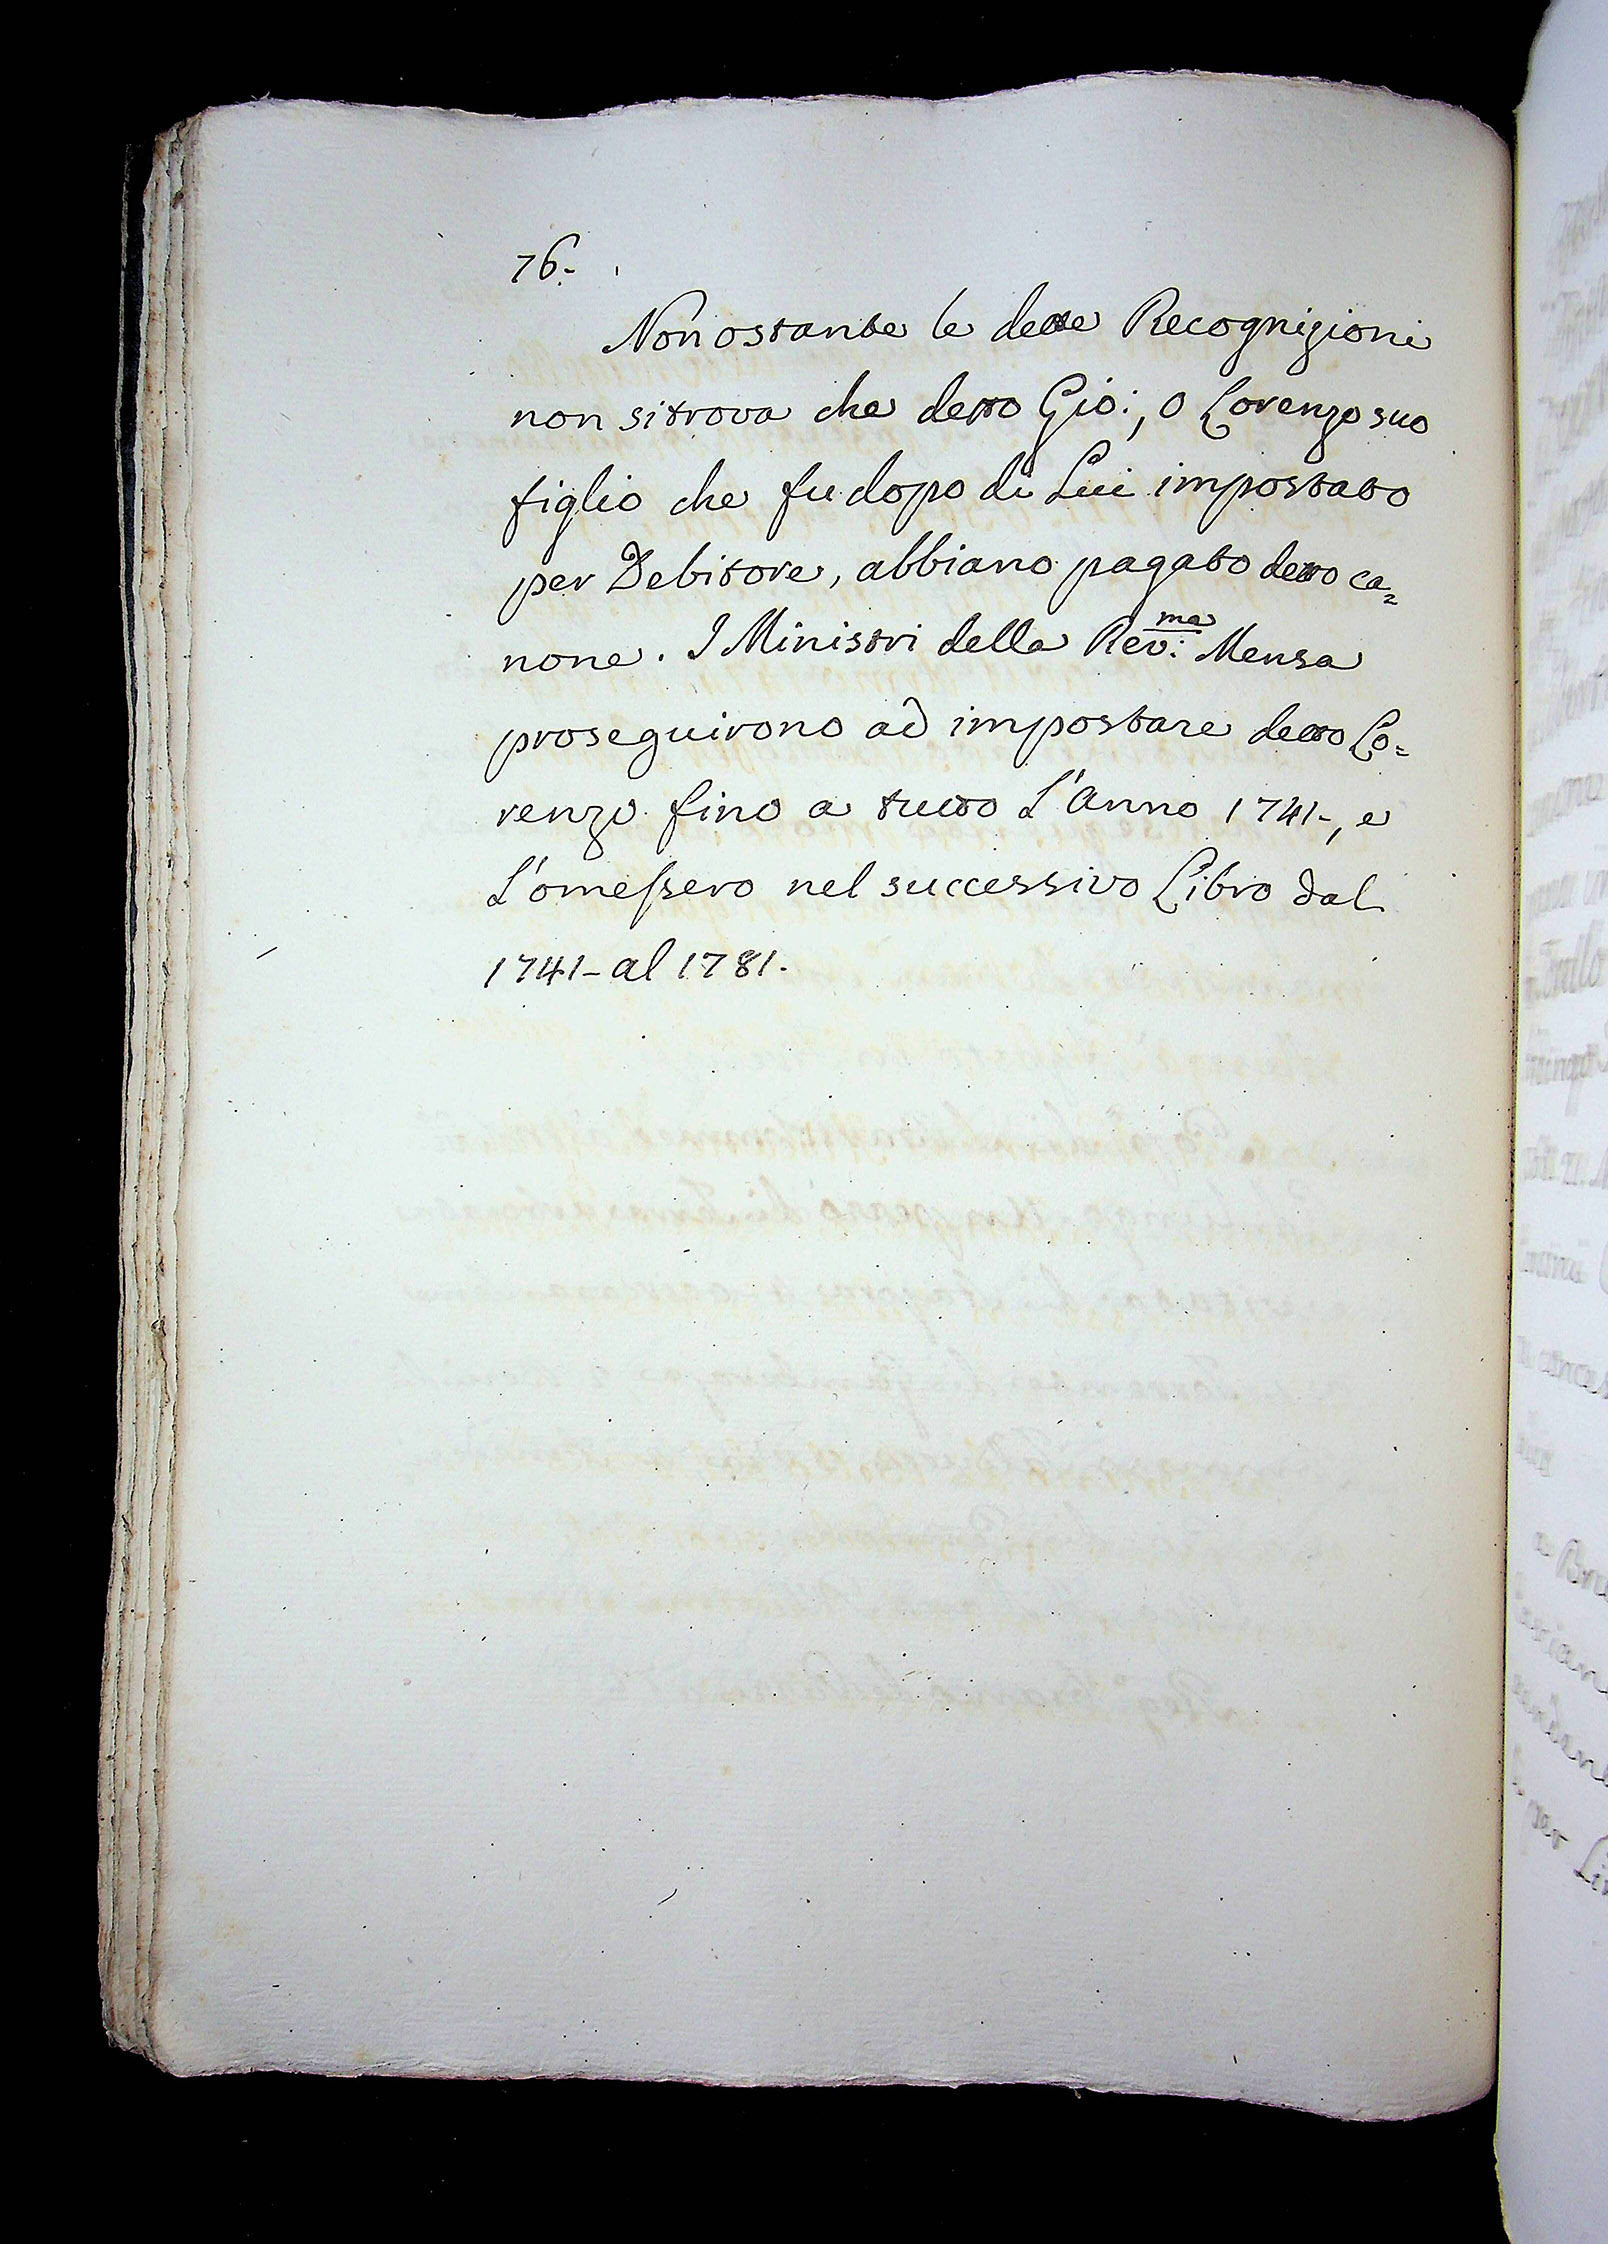 76.
Non ostante le dette Recognizioni
non si trova che detto Gio:, o Lorenzo suo
figlio che fu dopo di Lui impostato
per Debitore, abbiano pagato detto ca=
none. I Ministri della Rev:ma Mensa
proseguirono ad impostare detto Lo=
renzo fino a tutto L'Anno 1741-, e
L'omessero nel successivo Libro dal
1741- al 1781.